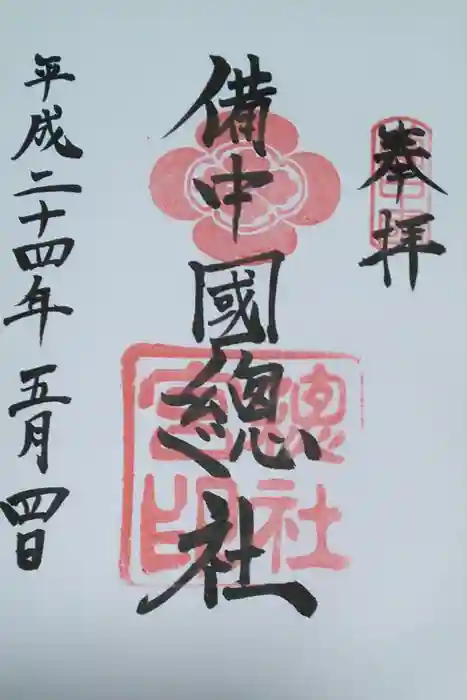 奉拝
備中國總社
總社宮印
平成二十四年五月四日